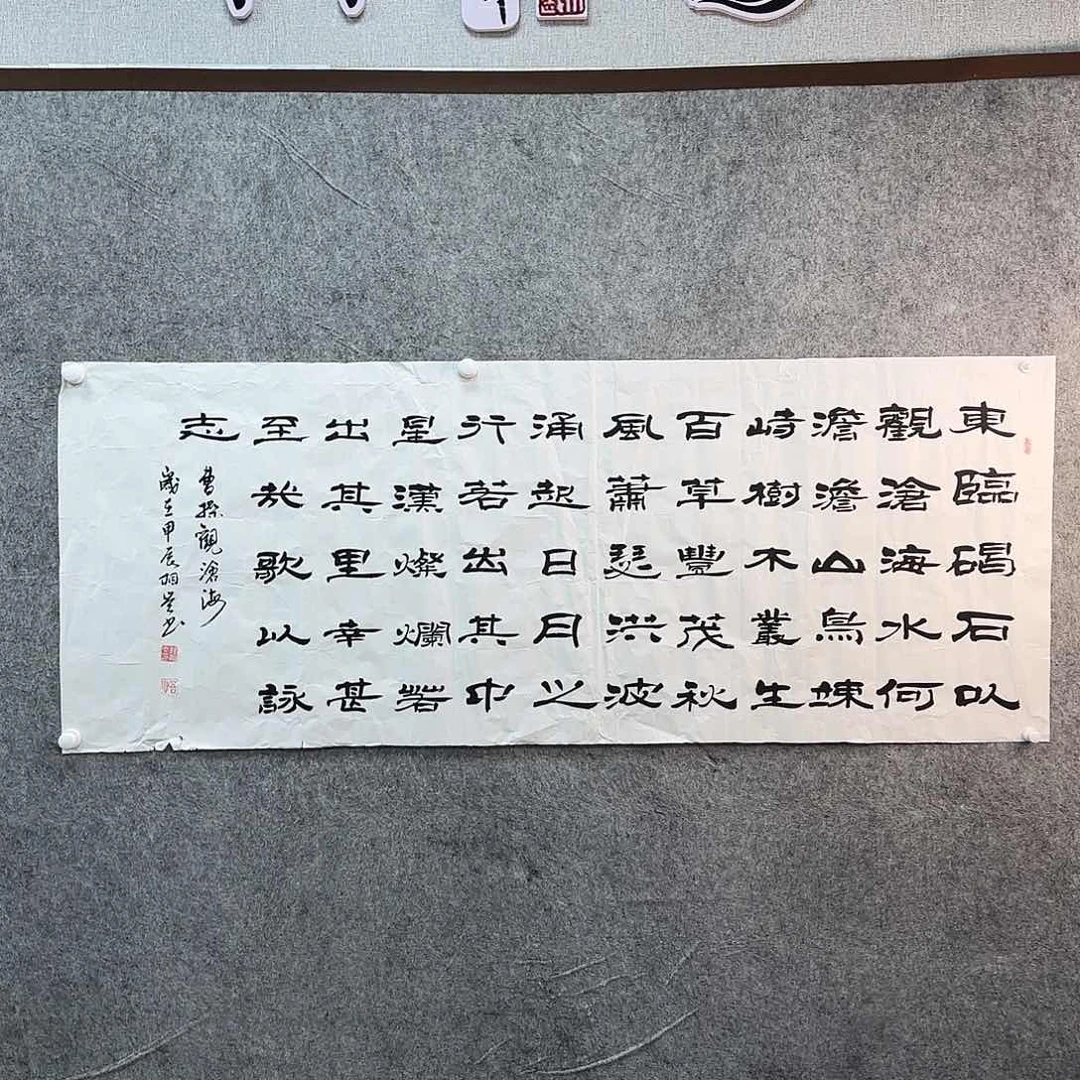 東臨碣石以
觀滄海水何
澹澹山島竦
峙樹木叢生
百草豐茂秋
風蕭瑟洪波
涌起日月之
行若出其中
星漢燦爛若
出其里幸甚
至哉歌以詠
志
曹操觀滄海
歲在甲辰